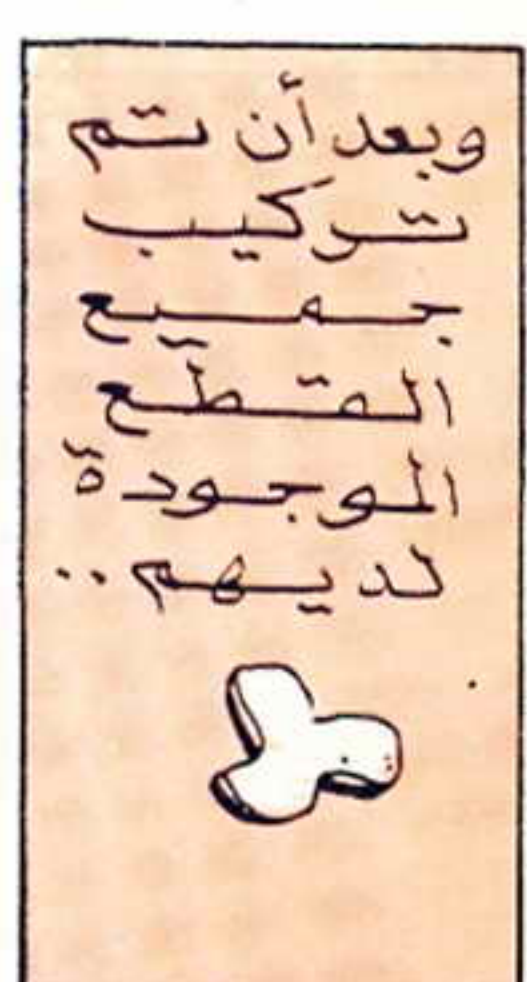 وبعد أن تم
تركيب
جميع
القطع
الموجودة
لديهم..